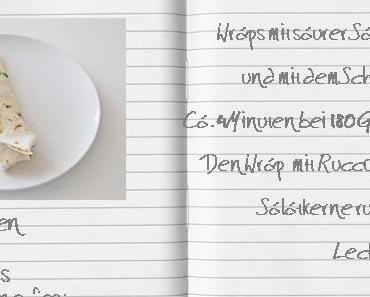 en
s
Wraps mit saurer Sa
und mit dem Sch
Ca. 4 Minuten bei 180 G
Den Wrap mit Rucco
Salatkerne
Lec